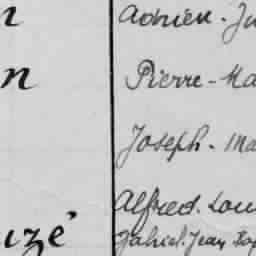 n Adrien - Ju
n Pierre - Ma
Joseph - Ma
Alfred. Lou
uzé Gabriel. Jean Bap